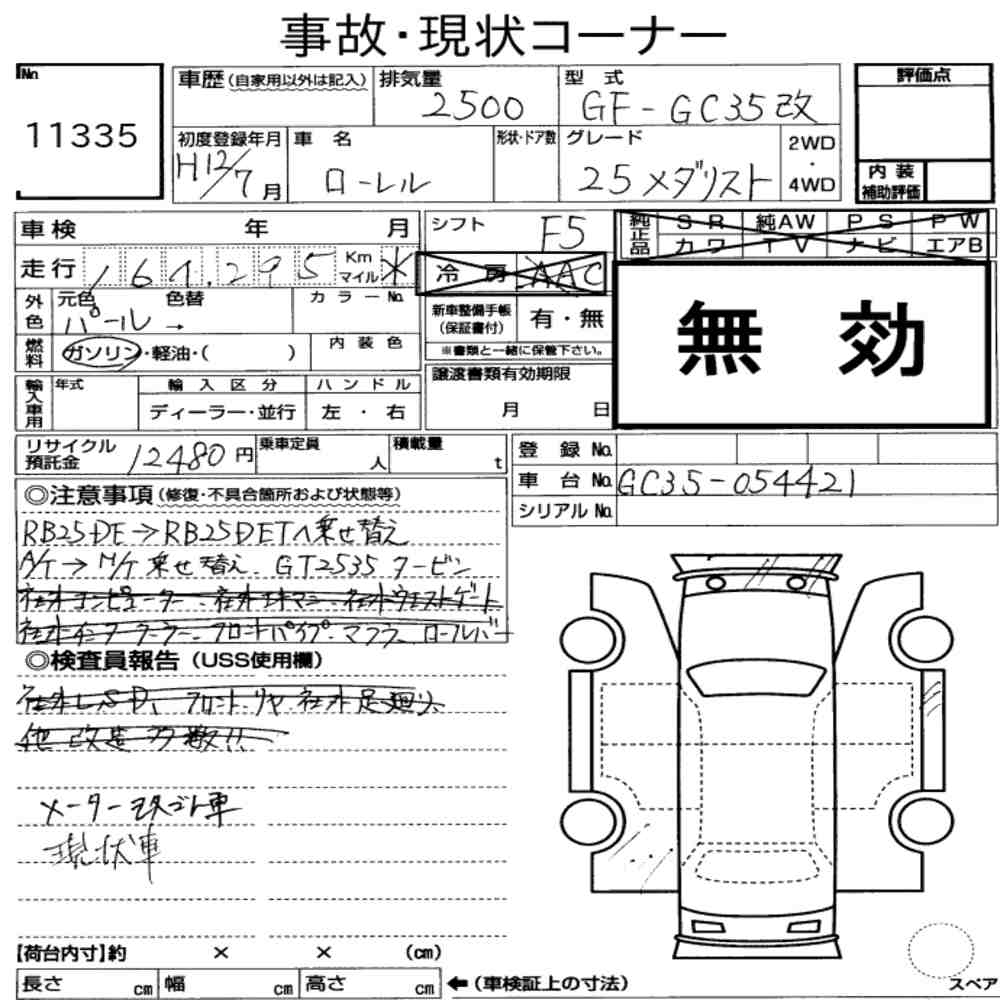 事故・現状コーナー
No.
11335
車歴(自家用以外は記入)
排気量
2500
型式
GF-GC35改
評価点
初度登録年月
H12/7月
車名
ローレル
形状・ドア数
グレード
25メダリスト
2WD
・
4WD
内装
補助評価
車検 年 月
シフト
F5
純正品
SR 純AW PS PW
カワ TV ナビ エアB
走行
164,295
Km
マイル
*
冷房
AAC
無効
外色
元色
パール→
色替
カラーNo.
新車整備手帳
(保証書付)
有・無
※書類と一緒に保管下さい。
燃料
ガソリン・軽油・( )
内装色
輸入車用
年式
輸入区分
ディーラー・並行
ハンドル
左・右
譲渡書類有効期限
月 日
リサイクル
預託金
12480円
乗車定員
人
積載量
t
登録No.
車台No.
GC35-054421
シリアルNo.
◎注意事項(修復・不具合箇所および状態等)
RB25DE→RB25DETへ乗せ替え
A/T→M/T乗せ替え、GT2535タービン
社外コンピューター、社外エキマニ、社外ウエストゲート
社外インタークーラー、フロントパイプ、マフラー、ロールバー
◎検査員報告(USS使用欄)
社外LSD、フロント、リヤ、社外足廻り、
他 改造多数!!
メーター改ざん車
現状車
【荷台内寸】約 × × (cm)
長さ cm 幅 cm 高さ cm
←(車検証上の寸法)
スペア